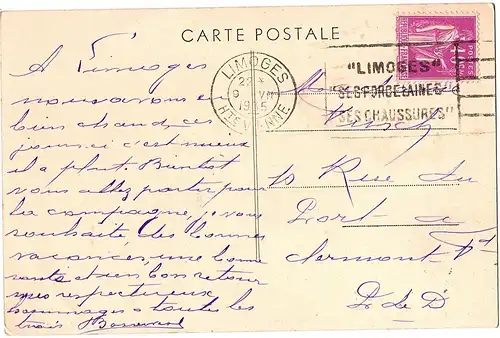 CARTE POSTALE
A Limoges
nous avons eu
bien chaud, ces
jours-ci c'est mieux
il a plut. Bientot
vous allez partir pour
la campagne, je vous
souhaite des bonnes
vacances, une bonne
santé et un bon retour
mes respectueux
hommages a toutes les
trois
LIMOGES
22 *
9 VI
1935
HTE VIENNE
"LIMOGES"
"SES PORCELAINES"
"SES CHAUSSURES"
POSTES
10 Rue du
Port a
Clermont Fd
P. de D